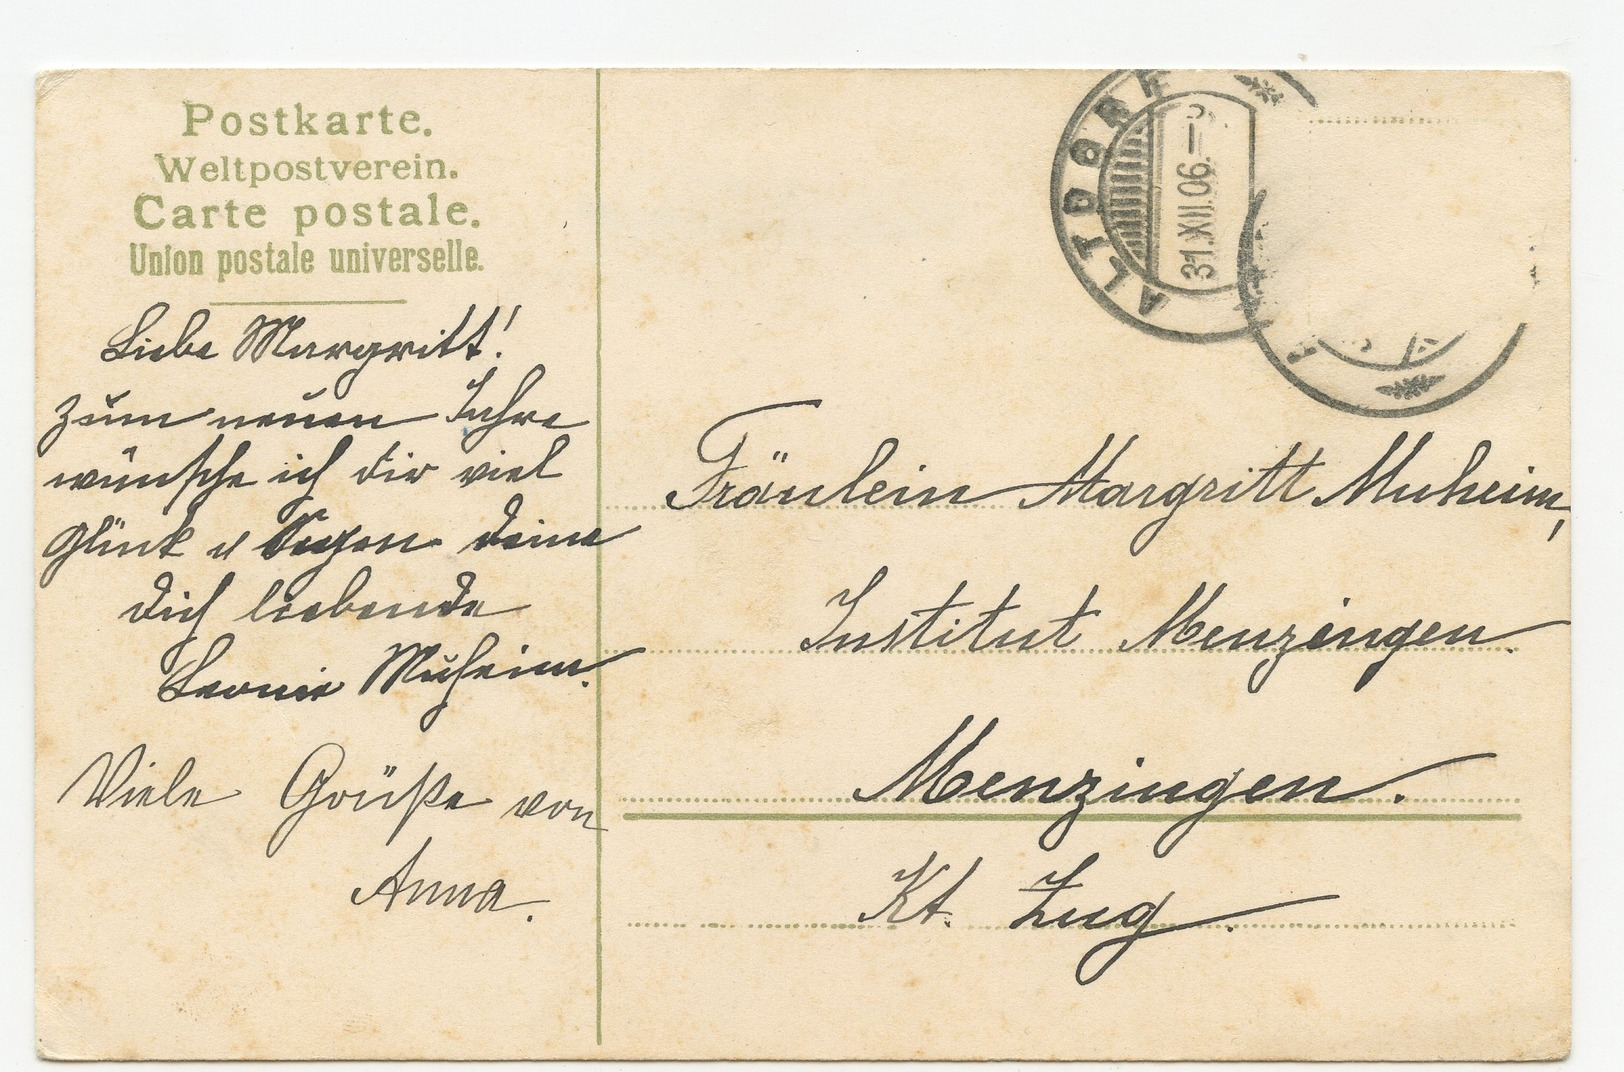 Postkarte.
Weltpostverein.
Carte postale.
Union postale universelle.
Liebe Margritt!
Zum neuen Jahre
wünsche ich dir viel
Glück u Segen deine
dich liebende
Leonie Muheim.
Viele Grüße von
Anna.
ALTDORF
31.XII.06.—
Fräulein Margritt Muheim,
Institut Menzingen.
Menzingen.
Kt. Zug.